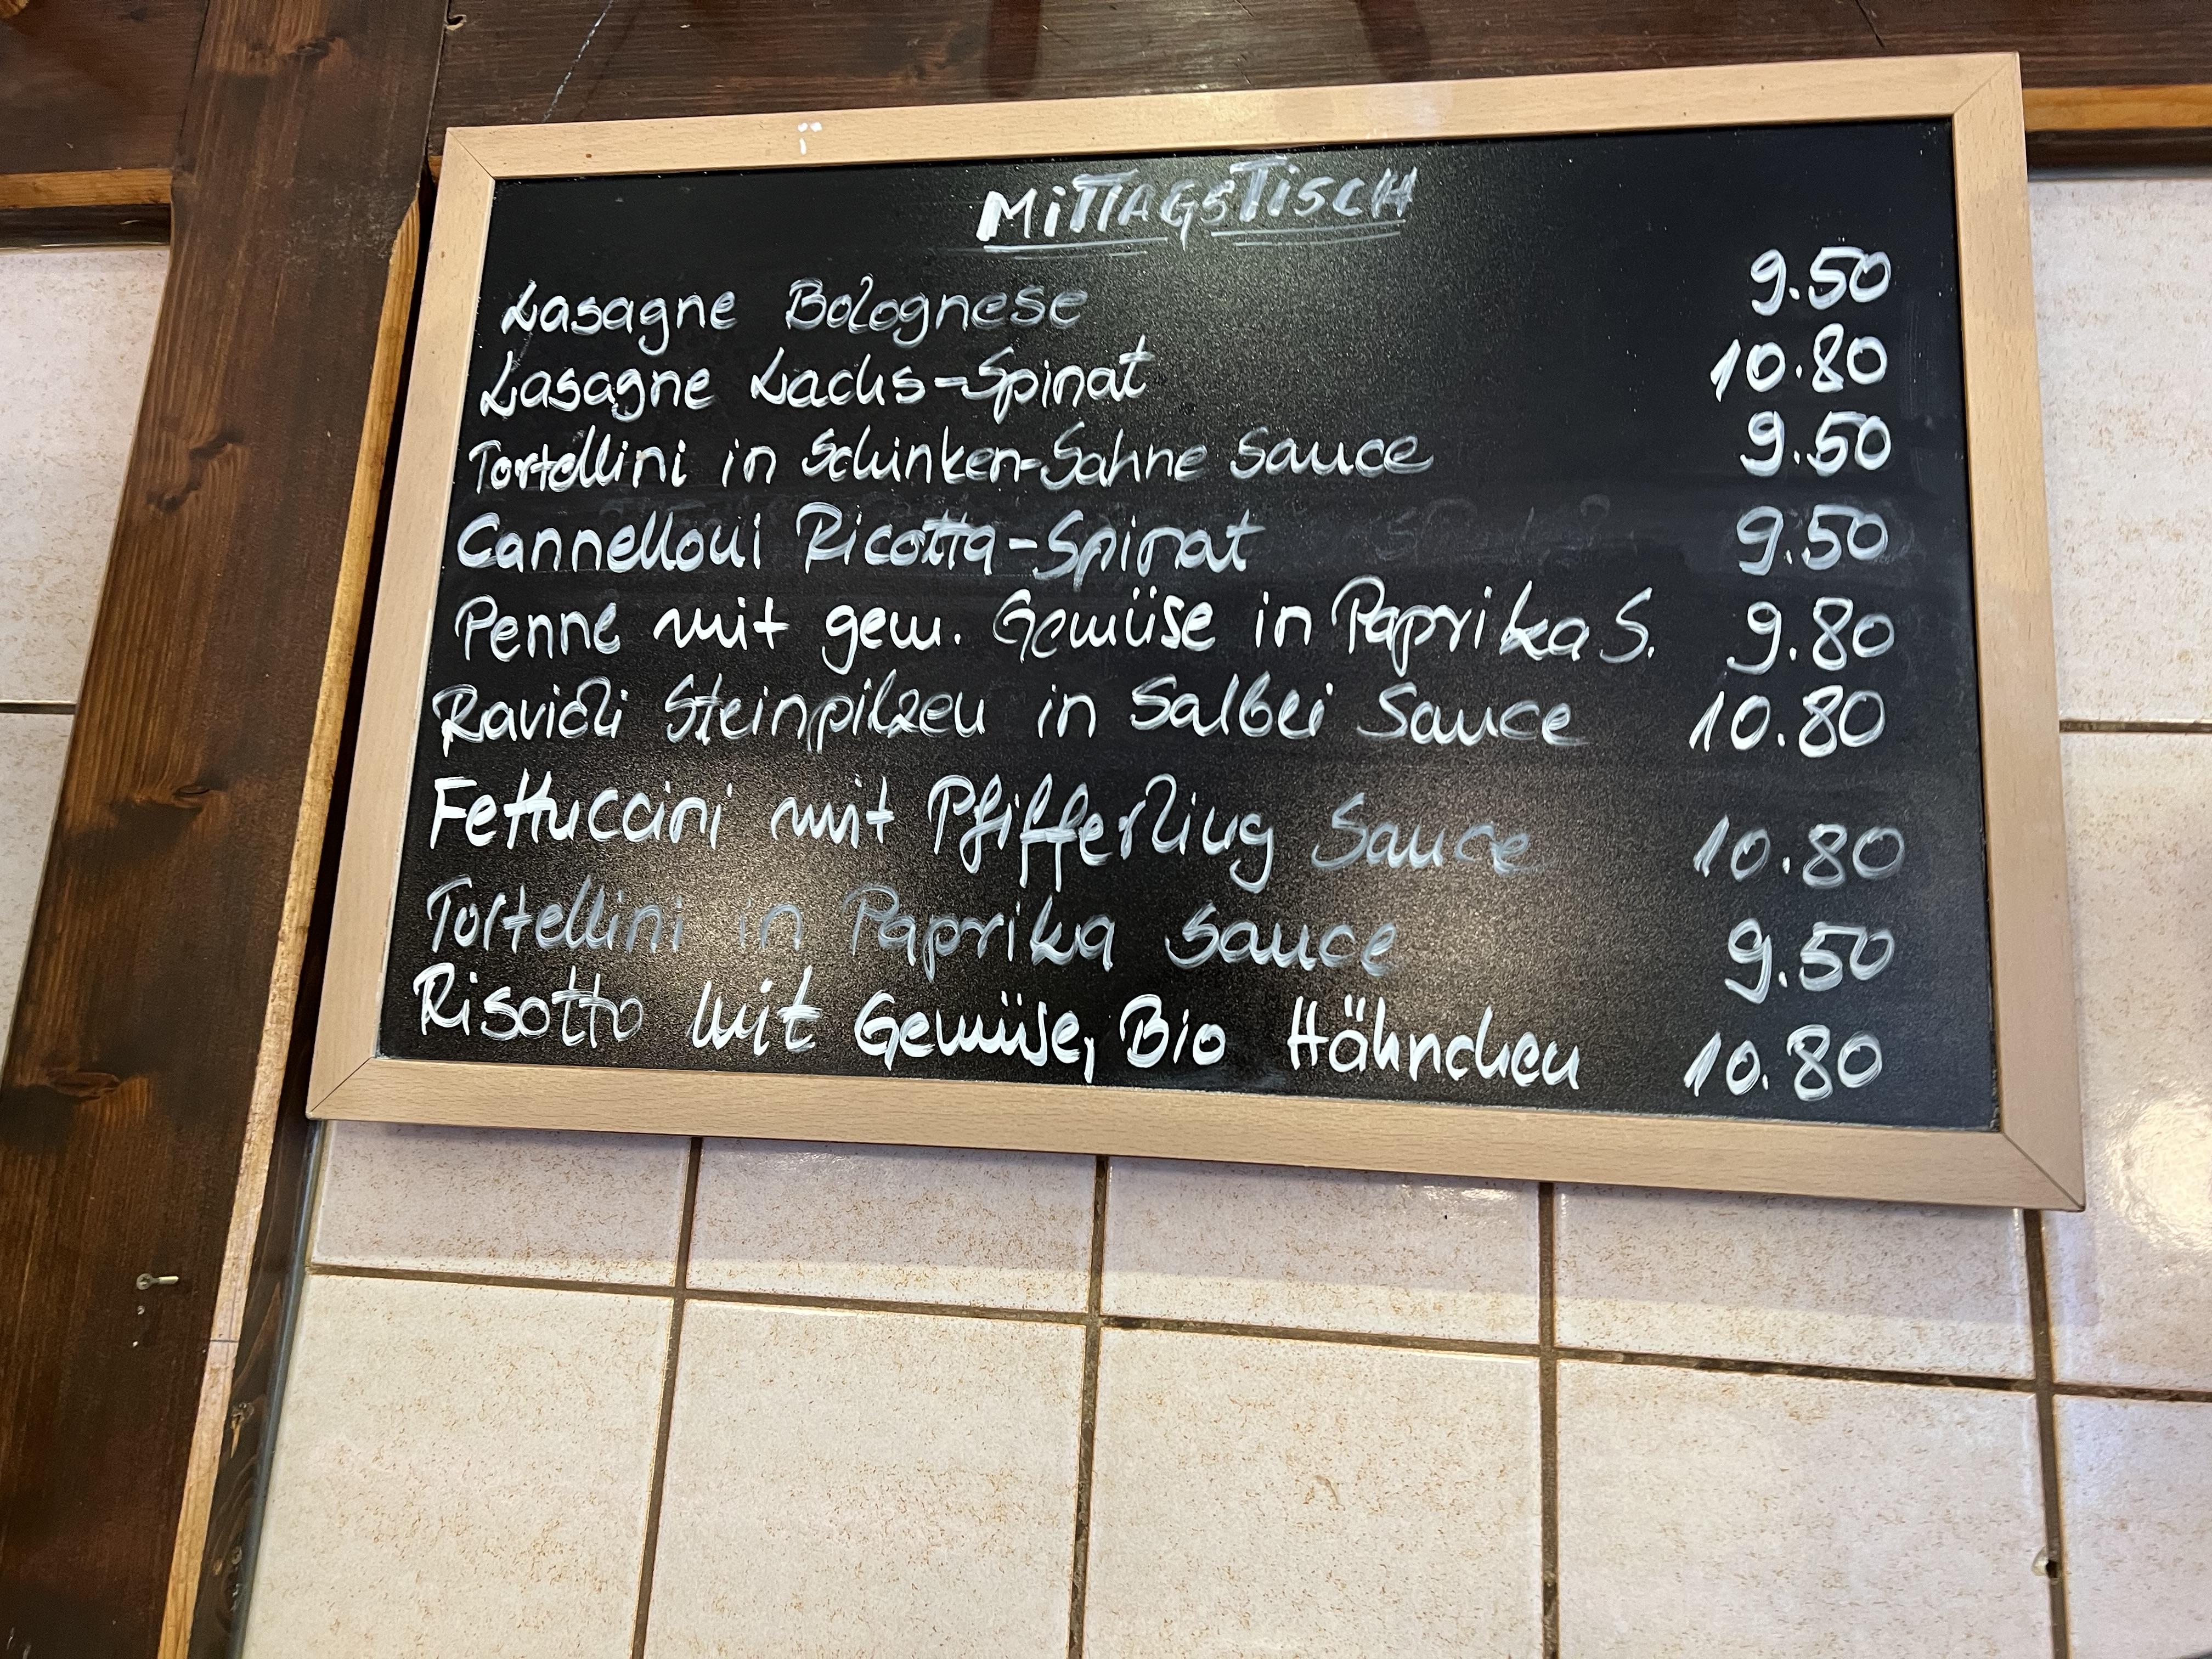 MiTTAGSTiSCH
Lasagne Bolognese 9.50
Lasagne Lachs-Spinat 10.80
Tortellini in Schinken-Sahne Sauce 9.50
Cannelloni Ricotta-Spinat 9.50
Penne mit gem. Gemüse in Paprika S. 9.80
Ravioli Steinpilzen in Salbei Sauce 10.80
Fettuccini mit Pfifferling Sauce 10.80
Tortellini in Paprika Sauce 9.50
Risotto mit Gemüse, Bio Hähnchen 10.80